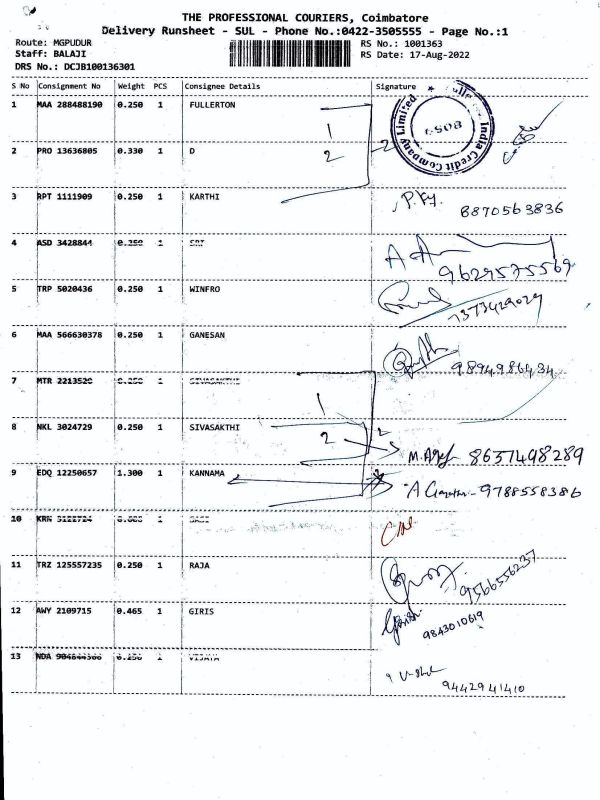 THE PROFESSIONAL COURIERS, Coimbatore
Delivery Runsheet - SUL - Phone No.:0422-3505555 - Page No.:1
Route: MGPUDUR RS No.: 1001363
Staff: BALAJI RS Date: 17-Aug-2022
DRS No.: DCJB100136301
S No Consignment No Weight PCS Consignee Details Signature
1 MAA 288488190 0.250 1 FULLERTON
India Credit Company Limited
1
2 PRO 13636805 0.330 1 D
2
3 RPT 1111909 0.250 1 KARTHI
8870563836
4 ASD 3428844 0.250 1 SRI
9629575569
5 TRP 5020436 0.250 1 WINFRO
7373429029
6 MAA 566630378 0.250 1 GANESAN
9894986434
7 MTR 2213520 0.250 1 SIVASAKTHI
1
8 NKL 3024729 0.250 1 SIVASAKTHI
2
8637498289
9 EDQ 12250657 1.300 1 KANNAMA
9788558386
10 KRN
11 TRZ 125557235 0.250 1 RAJA
9566556237
12 AWY 2109715 0.465 1 GIRIS
9843010619
13 NDA 0.250 1 VIJAYA
9442941410